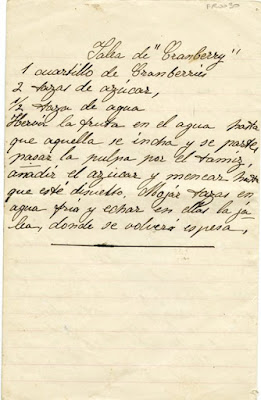 Jalea de "Cranberry"
1 cuartillo de Cranberries
2 tazas de azucar,
1/2 taza de agua
Hervir la fruta en el agua hasta
que aquella se incha y se parte,
pasar la pulpa por el tamiz,
añadir el azúcar y menear hasta
que esté disuelto. Mojar tazas en
agua fria y echar en ellas la ja-
lea, donde se volvera espesa,